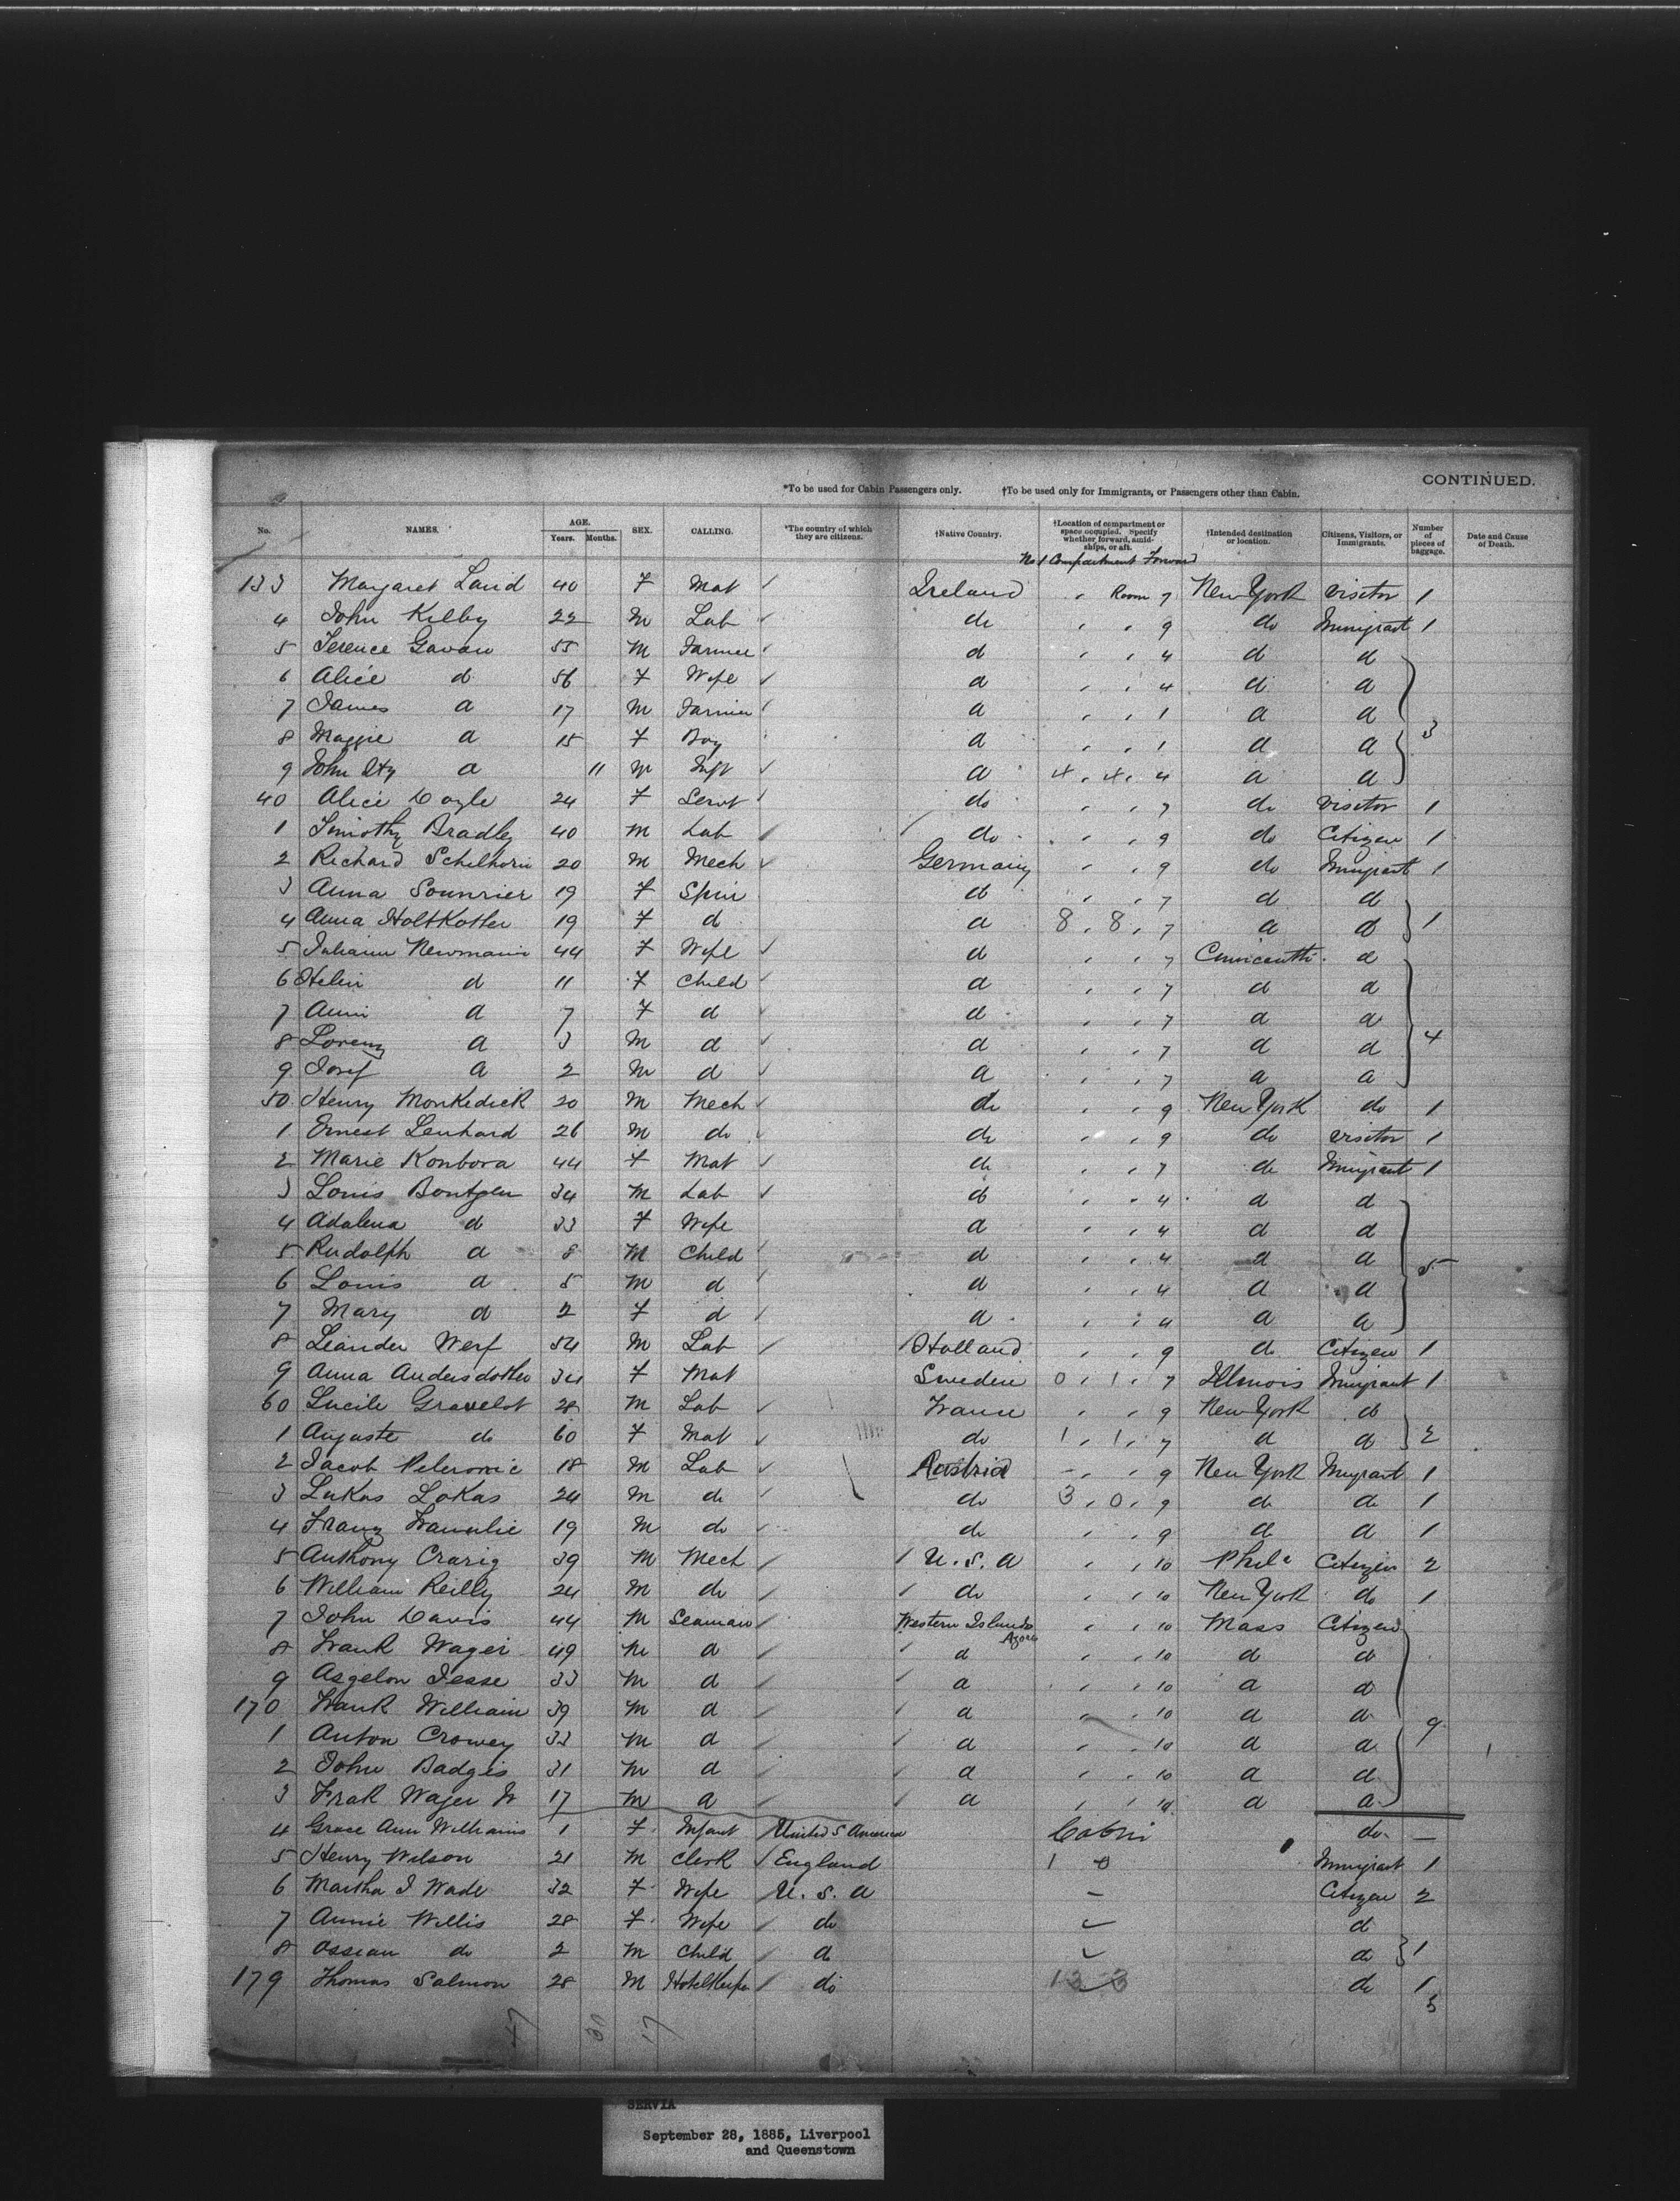 CONTINUED.
*To be used for Cabin Passengers only. †To be used only for Immigrants, or Passengers other than Cabin.
No. NAMES. AGE. Years. Months. SEX. CALLING. *The country of which they are citizens. †Native Country. †Location of compartment or space occupied. Specify whether forward, amidships, or aft. †Intended destination or location. Citizens, Visitors, or Immigrants. Number of pieces of baggage. Date and Cause of Death.
No 1 Compartment Forward
133 Margaret Laird 40 F Mat Ireland " Room 7 New York Visitor 1
4 John Kilby 22 M Lab do " " 9 do Immigrant 1
5 Terence Gavan 55 M Farmer d " " 4 d d
6 Alice d 56 F Wife d " " 4 d d
7 James d 17 M Farmer d " " 1 d d
8 Maggie d 15 F d " " 1 d d 3
9 John d 11 M Inft d 4 " 4 " 4 d d
40 Alice Doyle 24 F Servt do " " 7 do Visitor 1
1 Timothy Bradley 40 M Lab do " " 9 do Citizen 1
2 Richard Schelhorn 20 M Mech Germany " " 9 do Immigrant 1
3 Anna Sounrier 19 F Spin do " " 7 d d
4 Anna HoltKotter 19 F do d 8 " 8 " 7 d d 1
5 Juliann Newmann 44 F Wife d " " 7 d
6 Helen d 11 F Child d " " 7 d d
7 Anni d 7 F d d " " 7 d d
8 Lorenz d 3 M d d " " 7 d d 4
9 Josef d 2 M d d " " 7 d d
50 Henry Monkedick 20 M Mech do " " 9 New York do 1
1 Ernest Lenhard 26 M do do " " 9 do Visitor 1
2 Marie Konbora 44 F Mat do " " 7 do Immigrant 1
3 Louis Bontgen 34 M Lab do " " 4 d d
4 Adalena do 33 F Wife d " " 4 d d
5 Rudolph d 8 M Child d " " 4 d d 5
6 Louis d 5 M d d " " 4 d d
7 Mary d 2 F d d " " 4 d d
8 Leander Werf 54 M Lab Holland " " 9 do Citizen 1
9 Anna Andersdotter 34 F Mat Sweden 0 " 1 " 7 Illinois Immigrant 1
60 Lucile Gravelot 28 M Lab France " " 9 New York do
1 Auguste do 60 F Mat do 1 " 1 " 7 d d 2
2 Jacob Peterovic 18 M Lab Austria " " 9 New York Imigrant 1
3 Lukas Lokas 24 M do do 3 " 0 " 9 do do 1
4 Franz 19 M do do " " 9 d d 1
5 Anthony Crarig 39 M Mech U.S.A " " 10 Phila Citizen 2
6 William Reilly 24 M do do " " 10 New York do 1
7 John Davis 44 M Seaman Western Islands Azores " " 10 Mass Citizen
8 Frank Wager 49 M d d " " 10 d d
9 Asgelon Jesse 33 M d d " " 10 d d
170 Frank William 39 M d d " " 10 d d
1 Anton Crowey 33 M d d " " 10 d d 9
2 John Badgis 31 M d d " " 10 d d
3 Frak Wager Jr 17 M d d " " 10 d d
4 Grace Ann Williams 1 F Infant United S America Cabin do —
5 Henry Wilson 21 M Clerk England 1 0 Immigrant 1
6 Martha J Wade 32 F Wife U.S.A — Citizen 2
7 Annie Willis 28 F Wife do d
8 Ossian do 2 M Child d do 1
179 Thomas Salmon 28 M HotelKeeper do 13 3 do 1
5
47 30 17
SERVIA
September 28, 1885, Liverpool
and Queenstown